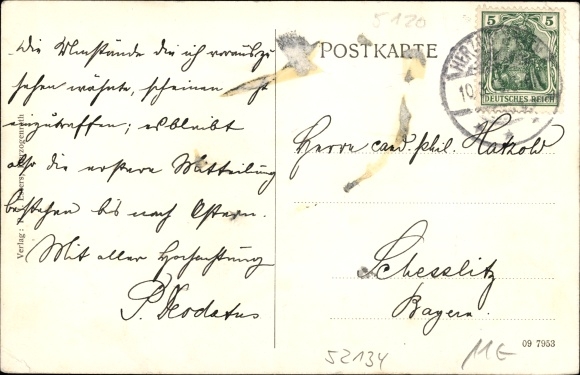 Die Umstände die ich vorauszu
sehen wähnte, scheinen
einzutreffen; es bleibt
also die erstere Mitteilung
bestehen bis nach Ostern.
Mit aller Hochachtung
P. Deodatus
Verlag: Herzogenrath
5120
POSTKARTE
5 5
DEUTSCHES REICH
HERZO
10.
Herrn cand. phil. Hatzold
Schesslitz
Bayern.
09 7953
52134
11€